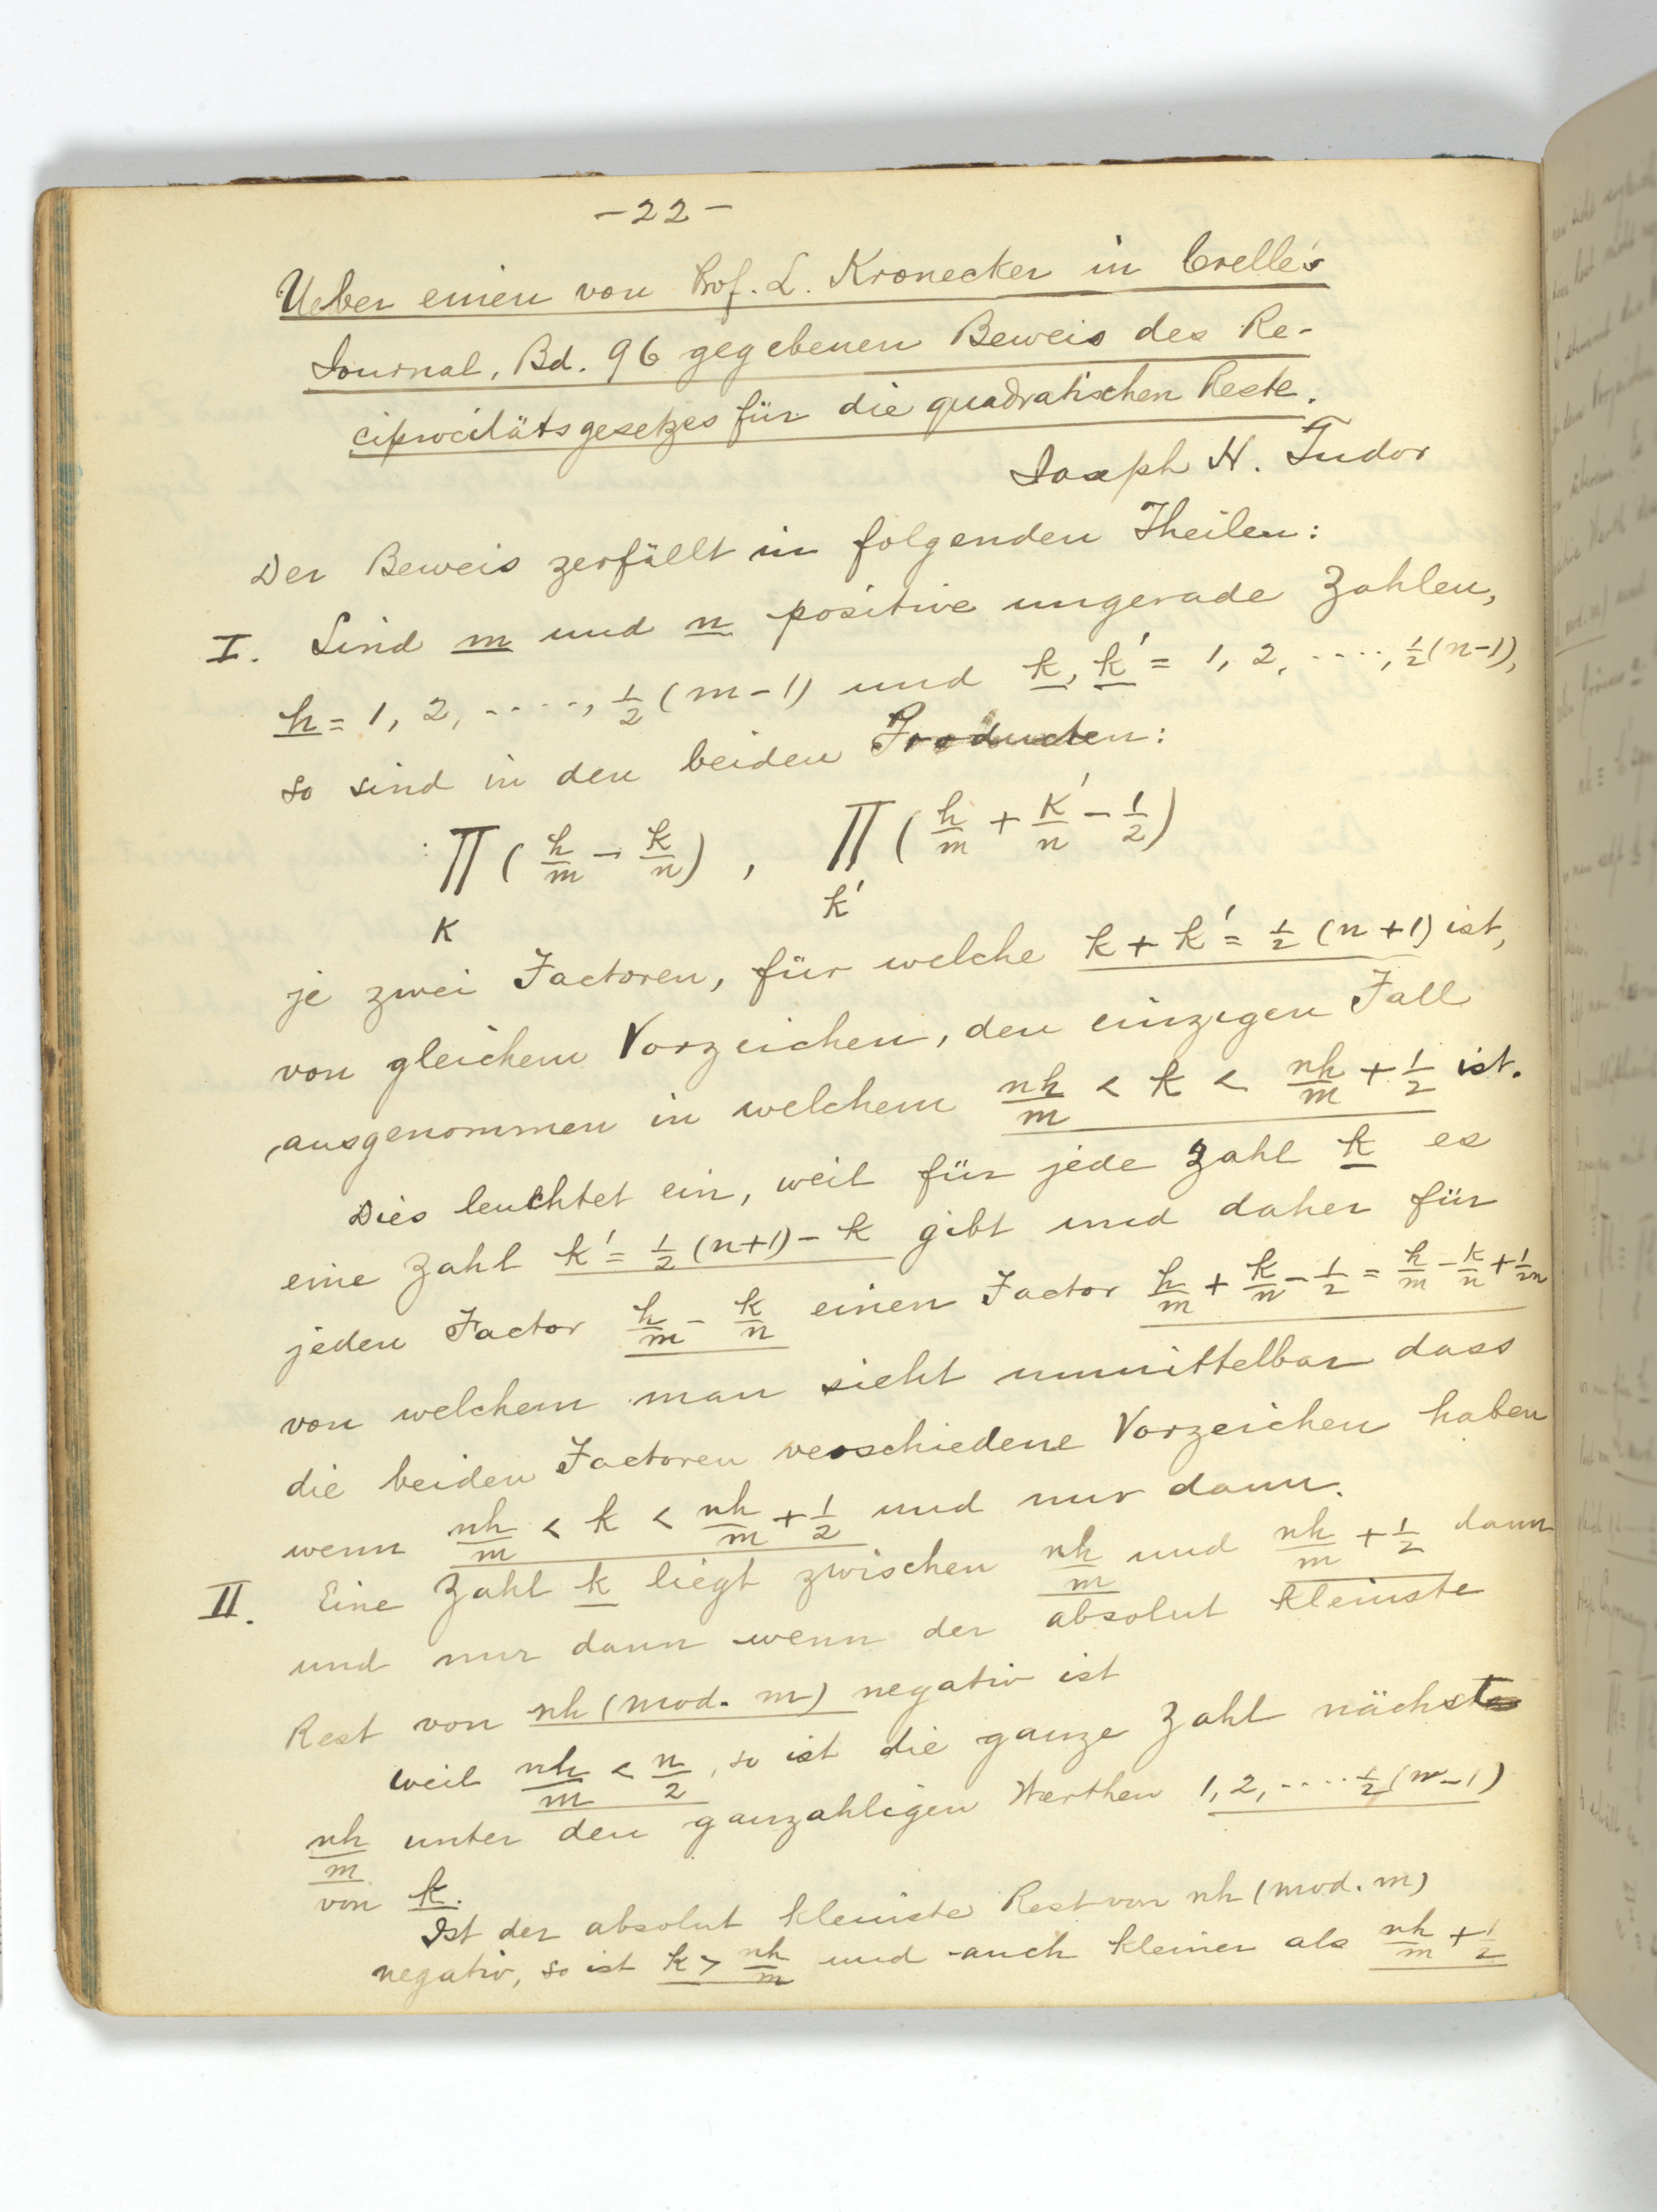 -22-
Ueber einen von Prof. L. Kronecker in Crelle's
Journal, Bd. 96 gegebenen Beweis des Re-
ciprocitätsgesetzes für die quadratischen Reste.
Joseph H. Tudor
Der Beweis zerfällt in folgenden Theilen:
I. Sind m und n positive ungerade Zahlen,
h = 1, 2, ...., 1/2 (m-1) und k, k' = 1, 2, ...., 1/2 (n-1),
so sind in den beiden Producten:
∏ (h/m - k/n) , ∏ (h/m + k'/n - 1/2)
k k'
je zwei Factoren, für welche k + k' = 1/2 (n+1) ist,
von gleichem Vorzeichen, den einzigen Fall
ausgenommen in welchem nh/m < k < nh/m + 1/2 ist.
Dies leuchtet ein, weil für jede Zahl k es
eine Zahl k' = 1/2 (n+1) - k gibt und daher für
jeden Factor h/m - k/n einen Factor h/m + k/n - 1/2 = h/m - k/n + 1/2n
von welchem man sieht unmittelbar dass
die beiden Factoren verschiedene Vorzeichen haben
wenn nh/m < k < nh/m + 1/2 und nur dann.
II. Eine Zahl k liegt zwischen nh/m und nh/m + 1/2 dann
und nur dann wenn der absolut kleinste
Rest von nh (mod. m) negativ ist
Weil nh/m < n/2, so ist die ganze Zahl nächst
nh/m unter den ganzahligen Werthen 1, 2, .... 1/2 (n-1)
von k.
Ist der absolut kleinste Rest von nh (mod. m)
negativ, so ist k > nh/m und auch kleiner als nh/m + 1/2